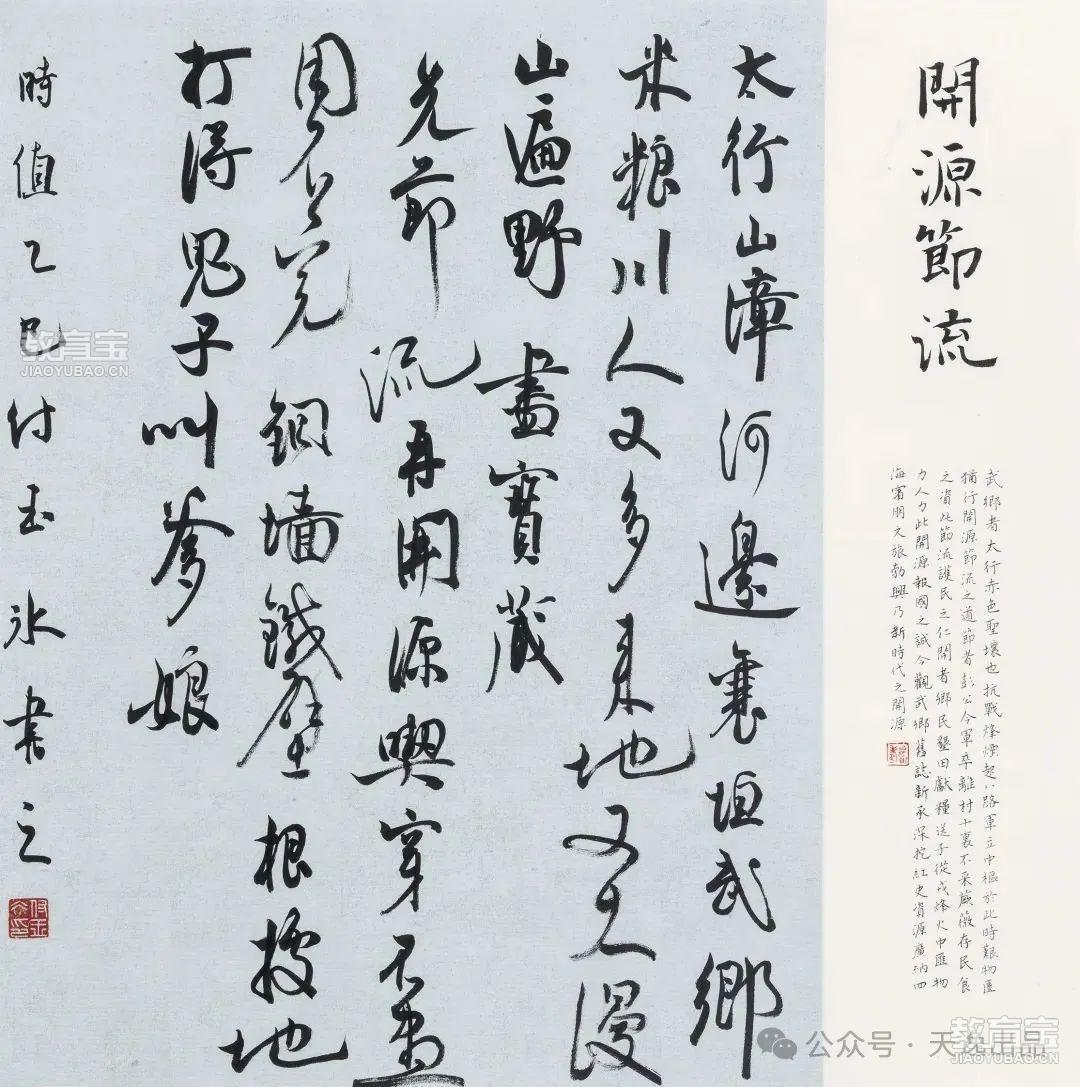 開源節流
武鄉者太行赤色聖壤也抗戰烽煙起八路軍立中樞於此時艱物匱
猶行開源節流之道節者彭公令軍卒離村十裏不采蕨薇存民食
之資此節流護民之仁開者鄉民墾田獻糧送子從戎烽火中匯物
力人力此開源報國之誠今觀武鄉舊誌新承深挖紅史資源廣納四
海賓朋文旅勃興乃新時代之開源
太行山漳河邊襄垣武鄉
米粮川人又多来地又大漫
山遍野盡寶藏
先節流再開源喫穿不盡
用不完銅墙鐵壁根據地
打得鬼子叫爹娘
時值乙巳付玉冰書之
教育宝
JIAOYUBAO.CN
公众号·天
教育宝
JIAOYUBAO.CN